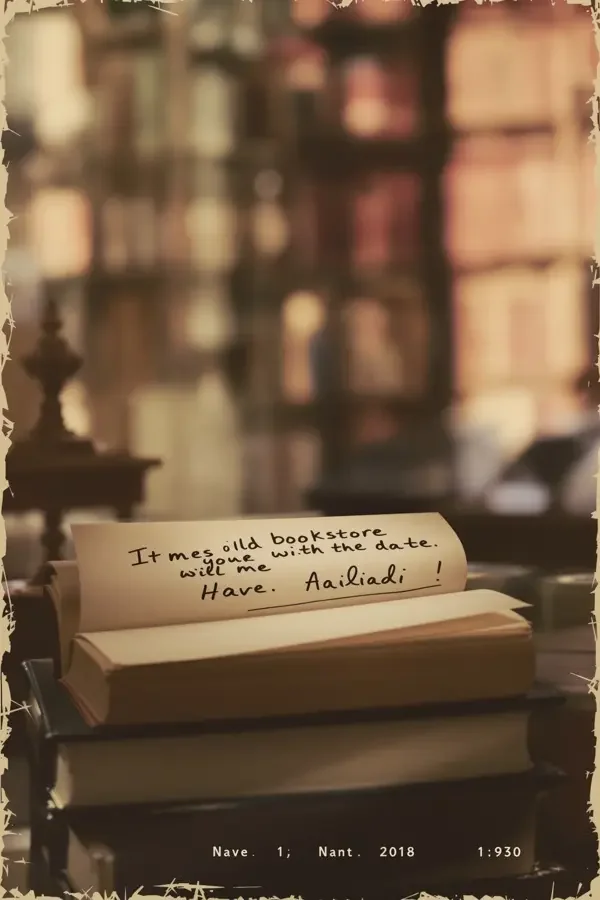 It mes öld bookstore
youe with the date.
will me
Have. Aailiadi !
Nave. 1; Nant. 2018 1:930